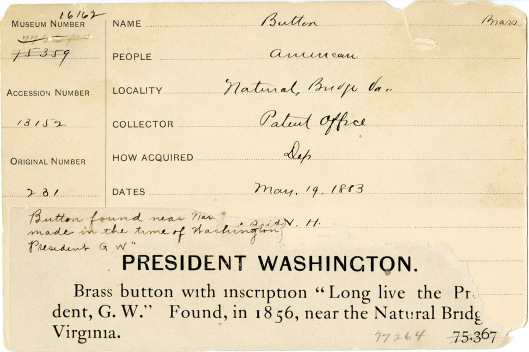 16162
MUSEUM NUMBER
75359
NAME Button Brass
PEOPLE American
ACCESSION NUMBER
LOCALITY Natural, Bridge Va..
13152
COLLECTOR Patent Office
ORIGINAL NUMBER
HOW ACQUIRED Dep
231
DATES May. 19. 1883
Button found near Nat. Brid N. H.
made in the time of Washington
President G W"
PRESIDENT WASHINGTON.
Brass button with inscription “Long live the Pr
dent, G. W.” Found, in 1856, near the Natural Bridg
Virginia.
77264 75.367